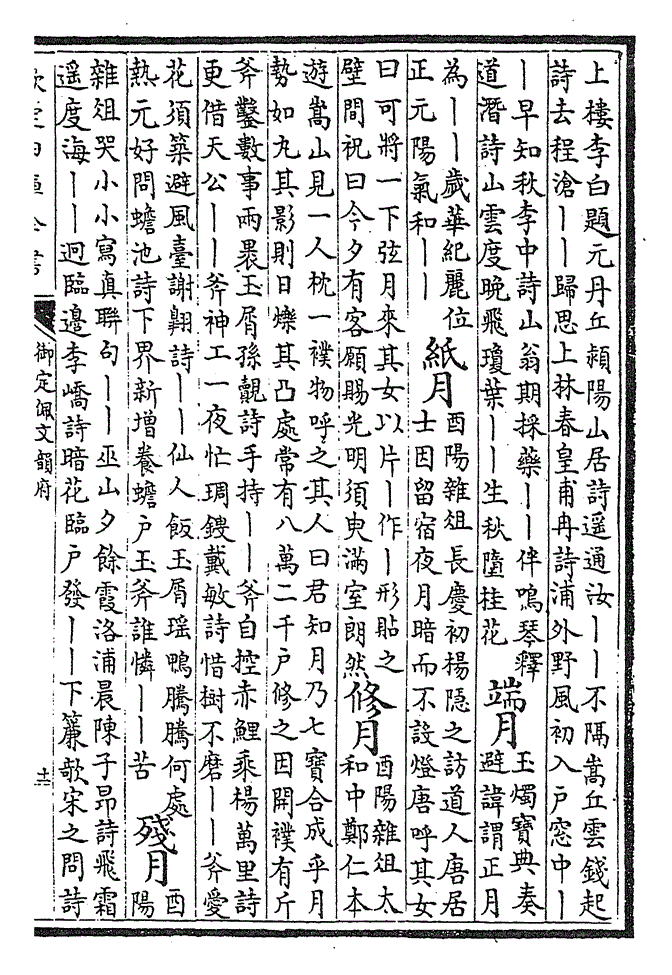 上樓李白題元丹丘潁陽山居詩遥通汝〡〡不隔嵩丘雲錢起
詩去程滄〡〡歸思上林春皇甫冉詩浦外野風初入户窓中〡
〡早知秋李中詩山翁期採藥〡〡伴鳴琴釋
道潛詩山雲度晚飛瓊葉〡〡生秋墮桂花
端月
玉燭寶典奏
避諱謂正月
為〡〡歲華紀麗位
正元陽氣和〡〡
紙月
酉陽雜俎長慶初楊隠之訪道人唐居
士因留宿夜月暗而不設燈唐呼其女
曰可將一下弦月來其女以片〡作〡形貼之
壁間祝曰今夕有客願賜光明須臾滿室朗然
修月
酉陽雜俎太
和中鄭仁本
遊嵩山見一人枕一襆物呼之其人曰君知月乃七寶合成乎月
勢如丸其影則日爍其凸處常有八萬二千户修之因開襆有斤
斧鑿數事兩裹玉屑孫覿詩手持〡〡斧自控赤鯉乘楊萬里詩
更借天公〡〡斧神工一夜忙琱鎪戴敏詩惜樹不磨〡〡斧愛
花須築避風臺謝翺詩〡〡仙人飯玉屑瑶鴨騰騰何處
熱元好問蟾池詩下界新增養蟾户玉斧誰憐〡〡苦
殘月
酉
陽
雜俎哭小小寫真聯句〡〡巫山夕餘霞洛浦晨陳子昂詩飛霜
遥度海〡〡迥臨邊李嶠詩暗花臨户發〡〡下簾欹宋之問詩
欽定四庫全書
御定佩文韻府
十二